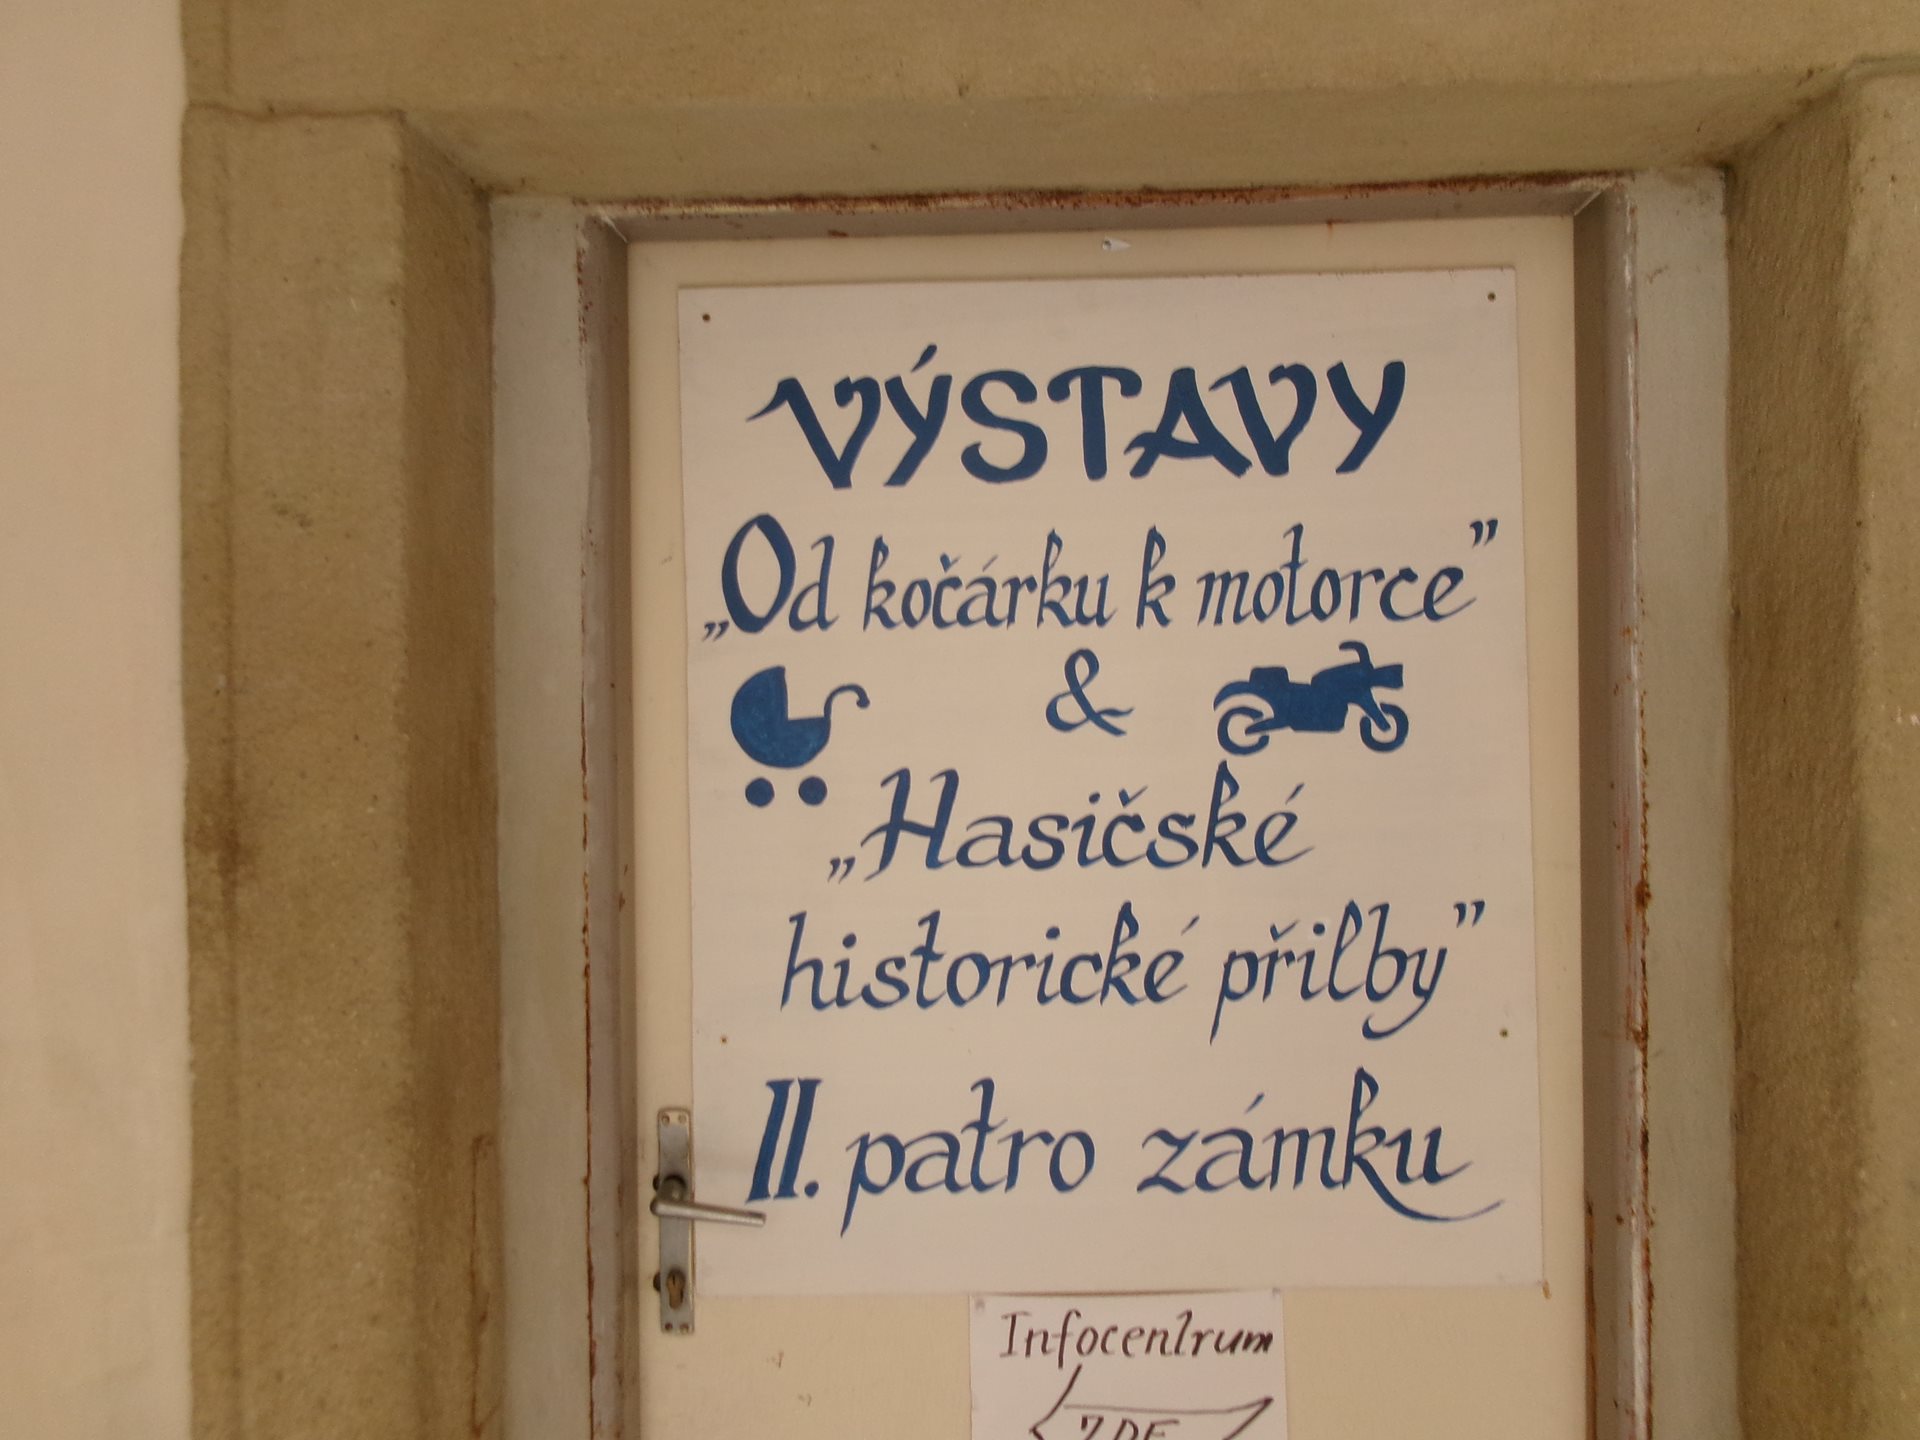 VÝSTAVY
„Od kočárku k motorce”
&
„Hasičské
historické přilby”
II. patro zámku
Infocentrum
ZDE